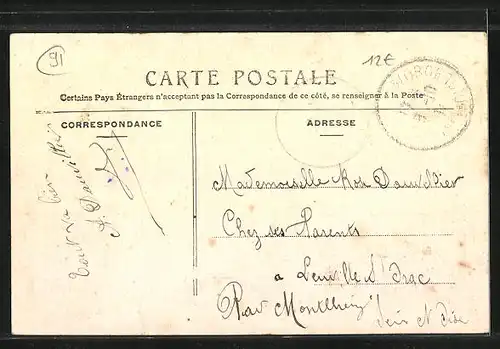 91
12€
CARTE POSTALE
Certains Pays Étrangers n'acceptant pas la Correspondance de ce côté, se renseigner à la Poste
CORRESPONDANCE
ADRESSE
Tout va bien
Mademoiselle
Chez ses Parents
à Leuville
Par Montlhéry